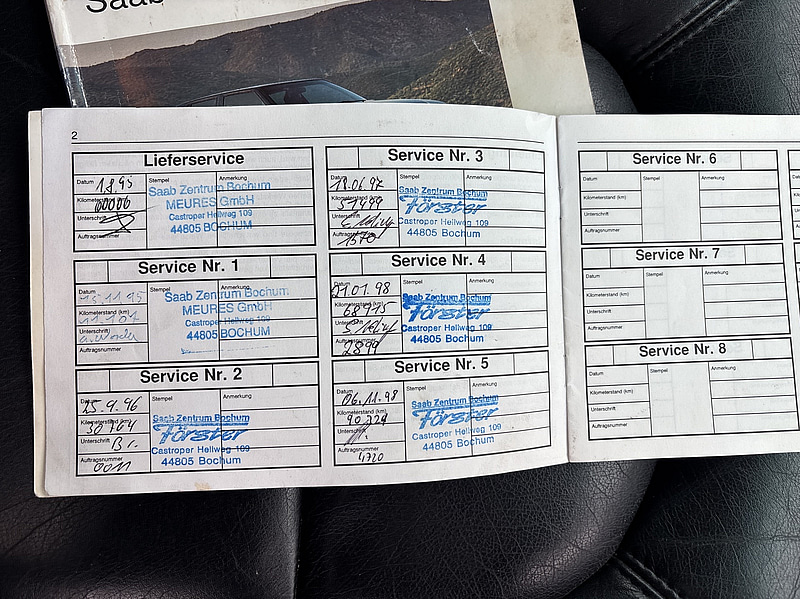 Saab
2
Lieferservice
Datum
Stempel
Anmerkung
1.8.95
Kilometerstand (km)
Unterschrift
Auftragsnummer
Saab Zentrum Bochum
MEURES GmbH
Castroper Hellweg 109
44805 BOCHUM
Service Nr. 1
Datum
Stempel
Anmerkung
15.11.95
Kilometerstand (km)
11.101
Unterschrift
Auftragsnummer
Saab Zentrum Bochum
MEURES GmbH
Castroper Hellweg 109
44805 BOCHUM
Service Nr. 2
Datum
Stempel
Anmerkung
25.9.96
Kilometerstand (km)
Unterschrift
Br.
Auftragsnummer
0011
Saab Zentrum Bochum
Förster
Castroper Hellweg 109
44805 Bochum
Service Nr. 3
Datum
Stempel
Anmerkung
18.06.97
Kilometerstand (km)
51499
Unterschrift
Auftragsnummer
1570
Saab Zentrum Bochum
Förster
Castroper Hellweg 109
44805 Bochum
Service Nr. 4
Datum
Stempel
Anmerkung
21.01.98
Kilometerstand (km)
68915
Unterschrift
Auftragsnummer
2899
Saab Zentrum Bochum
Förster
Castroper Hellweg 109
44805 Bochum
Service Nr. 5
Datum
Stempel
Anmerkung
06.11.98
Kilometerstand (km)
90229
Unterschrift
Auftragsnummer
4720
Saab Zentrum Bochum
Förster
Castroper Hellweg 109
44805 Bochum
Service Nr. 6
Datum
Stempel
Anmerkung
Kilometerstand (km)
Unterschrift
Auftragsnummer
Service Nr. 7
Datum
Stempel
Anmerkung
Kilometerstand (km)
Unterschrift
Auftragsnummer
Service Nr. 8
Datum
Stempel
Anmerkung
Kilometerstand (km)
Unterschrift
Auftragsnummer